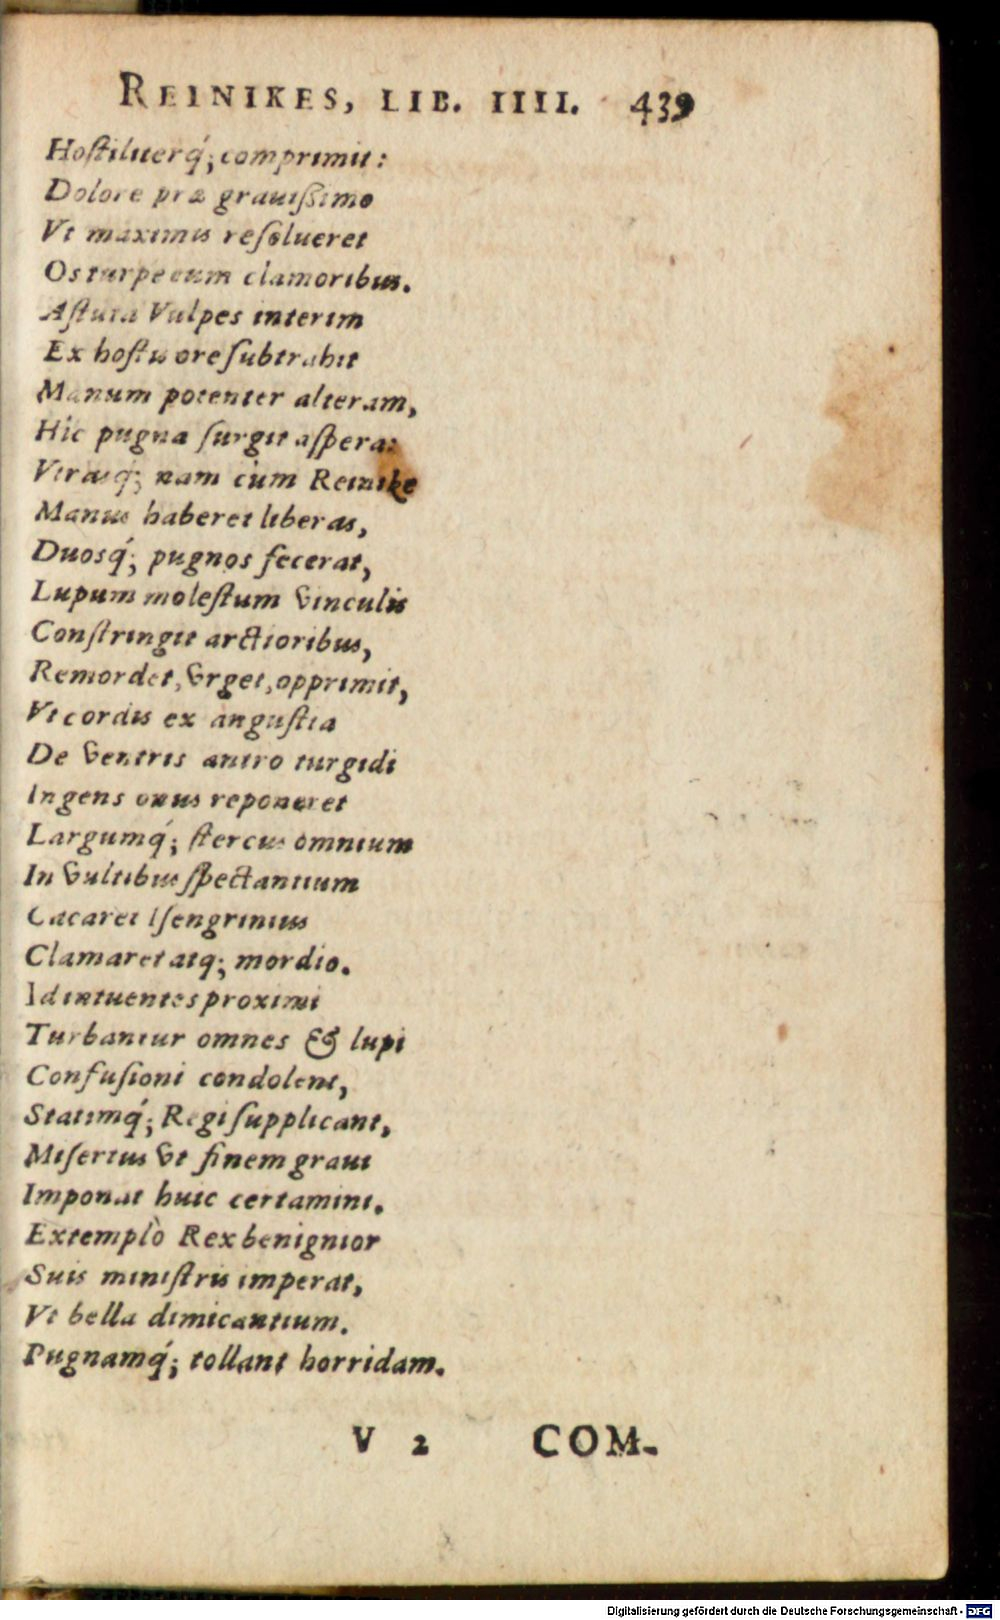 REINIKES, LIB. IIII. 439
Hoſtiliterq́; comprimit:
Dolore præ grauiſſimo
Vt maximis reſolueret
Os turpe cum clamoribus.
Aſtuta Vulpes interim
Ex hoſtis ore ſubtrahit
Manum potenter alteram,
Hic pugna ſurgit aſpera:
Vtrasq́; nam cùm Reinike
Manus haberet liberas,
Duosq́; pugnos fecerat,
Lupum moleſtum vinculis
Conſtringit arctioribus,
Remordet, vrget, opprimit,
Vt cordis ex anguſtia
De ventris antro turgidi
Ingens onus reponeret
Largumq́; ſtercus omnium
In vultibus ſpectantium
Cacaret Iſengrimus
Clamaret atq; mordio.
Id intuentes proximi
Turbantur omnes & lupi
Confuſioni condolent,
Statimq́; Regi ſupplicant,
Miſertus vt finem graui
Imponat huic certamini.
Extemplò Rex benignior
Suis miniſtris imperat,
Vt bella dimicantium.
Pugnamq́; tollant horridam.
V 2 COM-
Digitalisierung gefördert durch die Deutsche Forschungsgemeinschaft - DFG